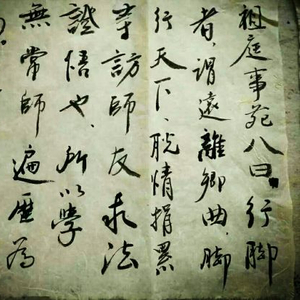 祖庭事苑八曰、行脚
者、謂遠離鄉曲、脚
行天下、脫情捐累
尋訪師友求法
證悟也、所以學
無常師遍歷為